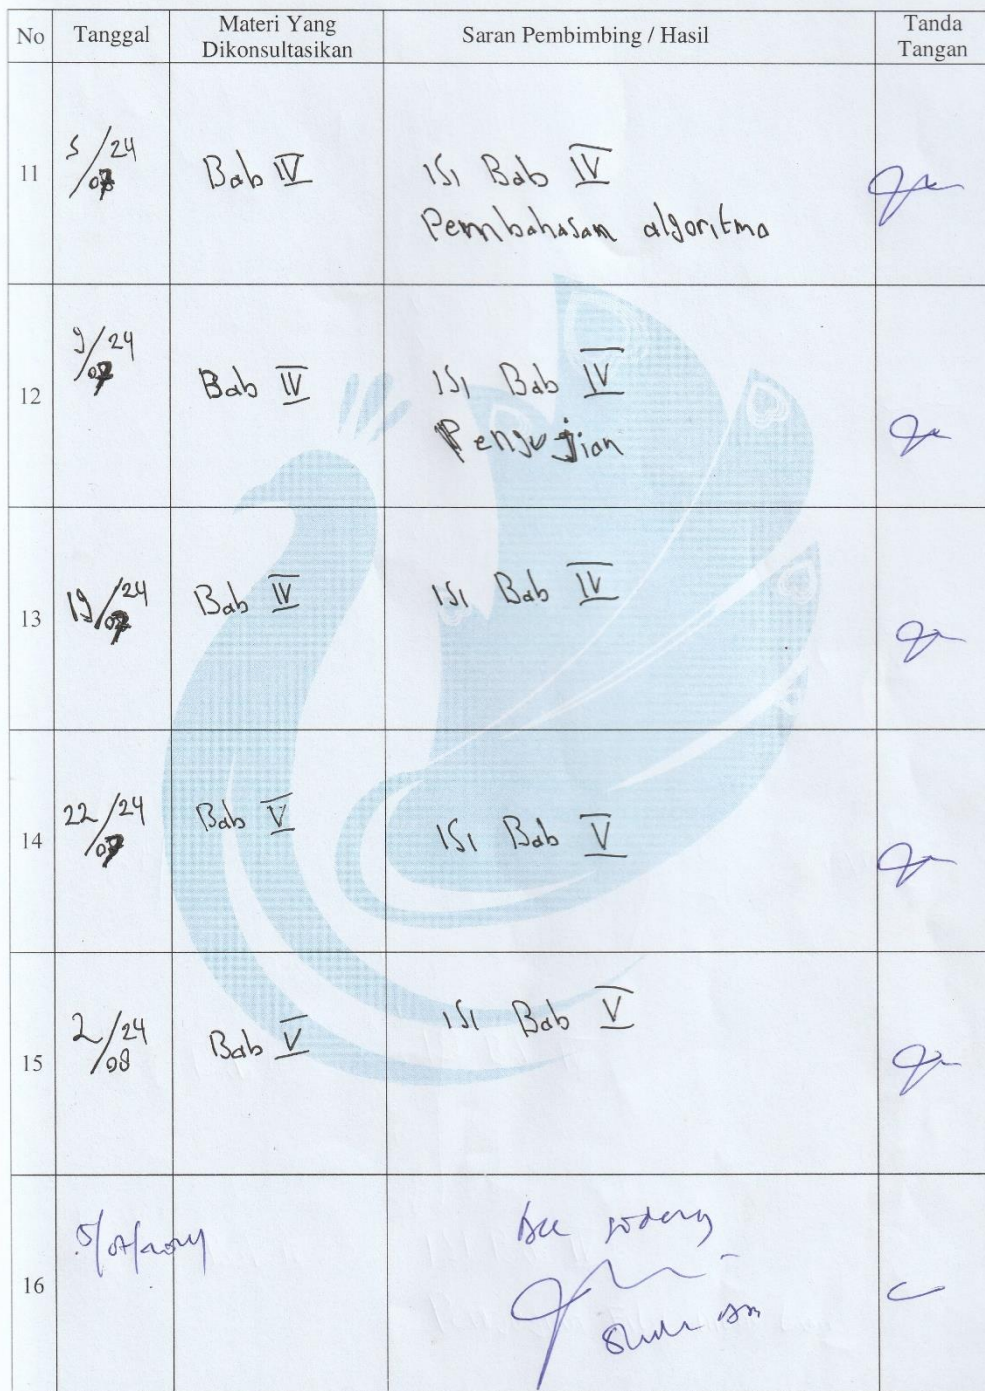 No Tanggal Materi Yang Dikonsultasikan Saran Pembimbing / Hasil Tanda Tangan
11 5/24 /07 Bab IV ISI Bab IV
Pembahasan algoritma
12 9/24 /07 Bab IV ISI Bab IV
Pengujian
13 19/24 /07 Bab IV ISI Bab IV
14 22/24 /07 Bab V ISI Bab V
15 2/24 /08 Bab V ISI Bab V
16 Acc